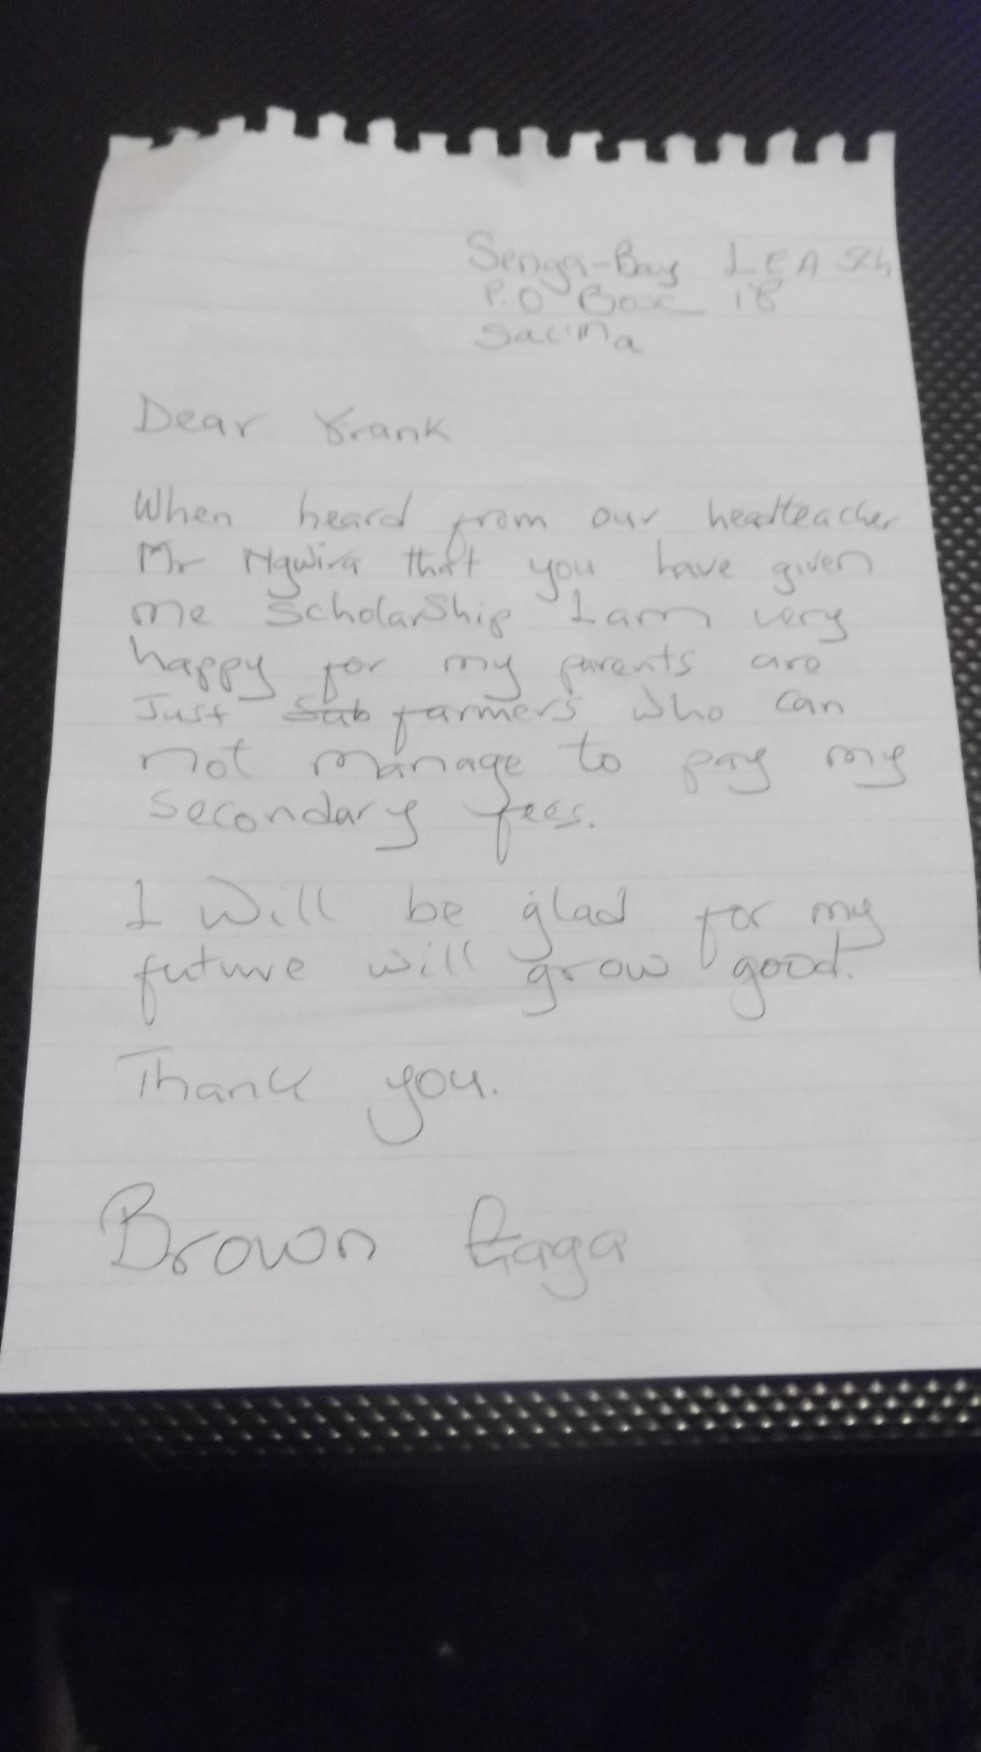 Senga-Bay LEA Sch
P.O Box 18
Salima
Dear Frank
When heard from our headteacher
Mr Ngwira that you have given
me Scholarship I am very
happy for my parents are
Just Sub farmers who can
not manage to pay my
secondary fees.
I will be glad for my
future will grow good.
Thank you.
Brown Gaga